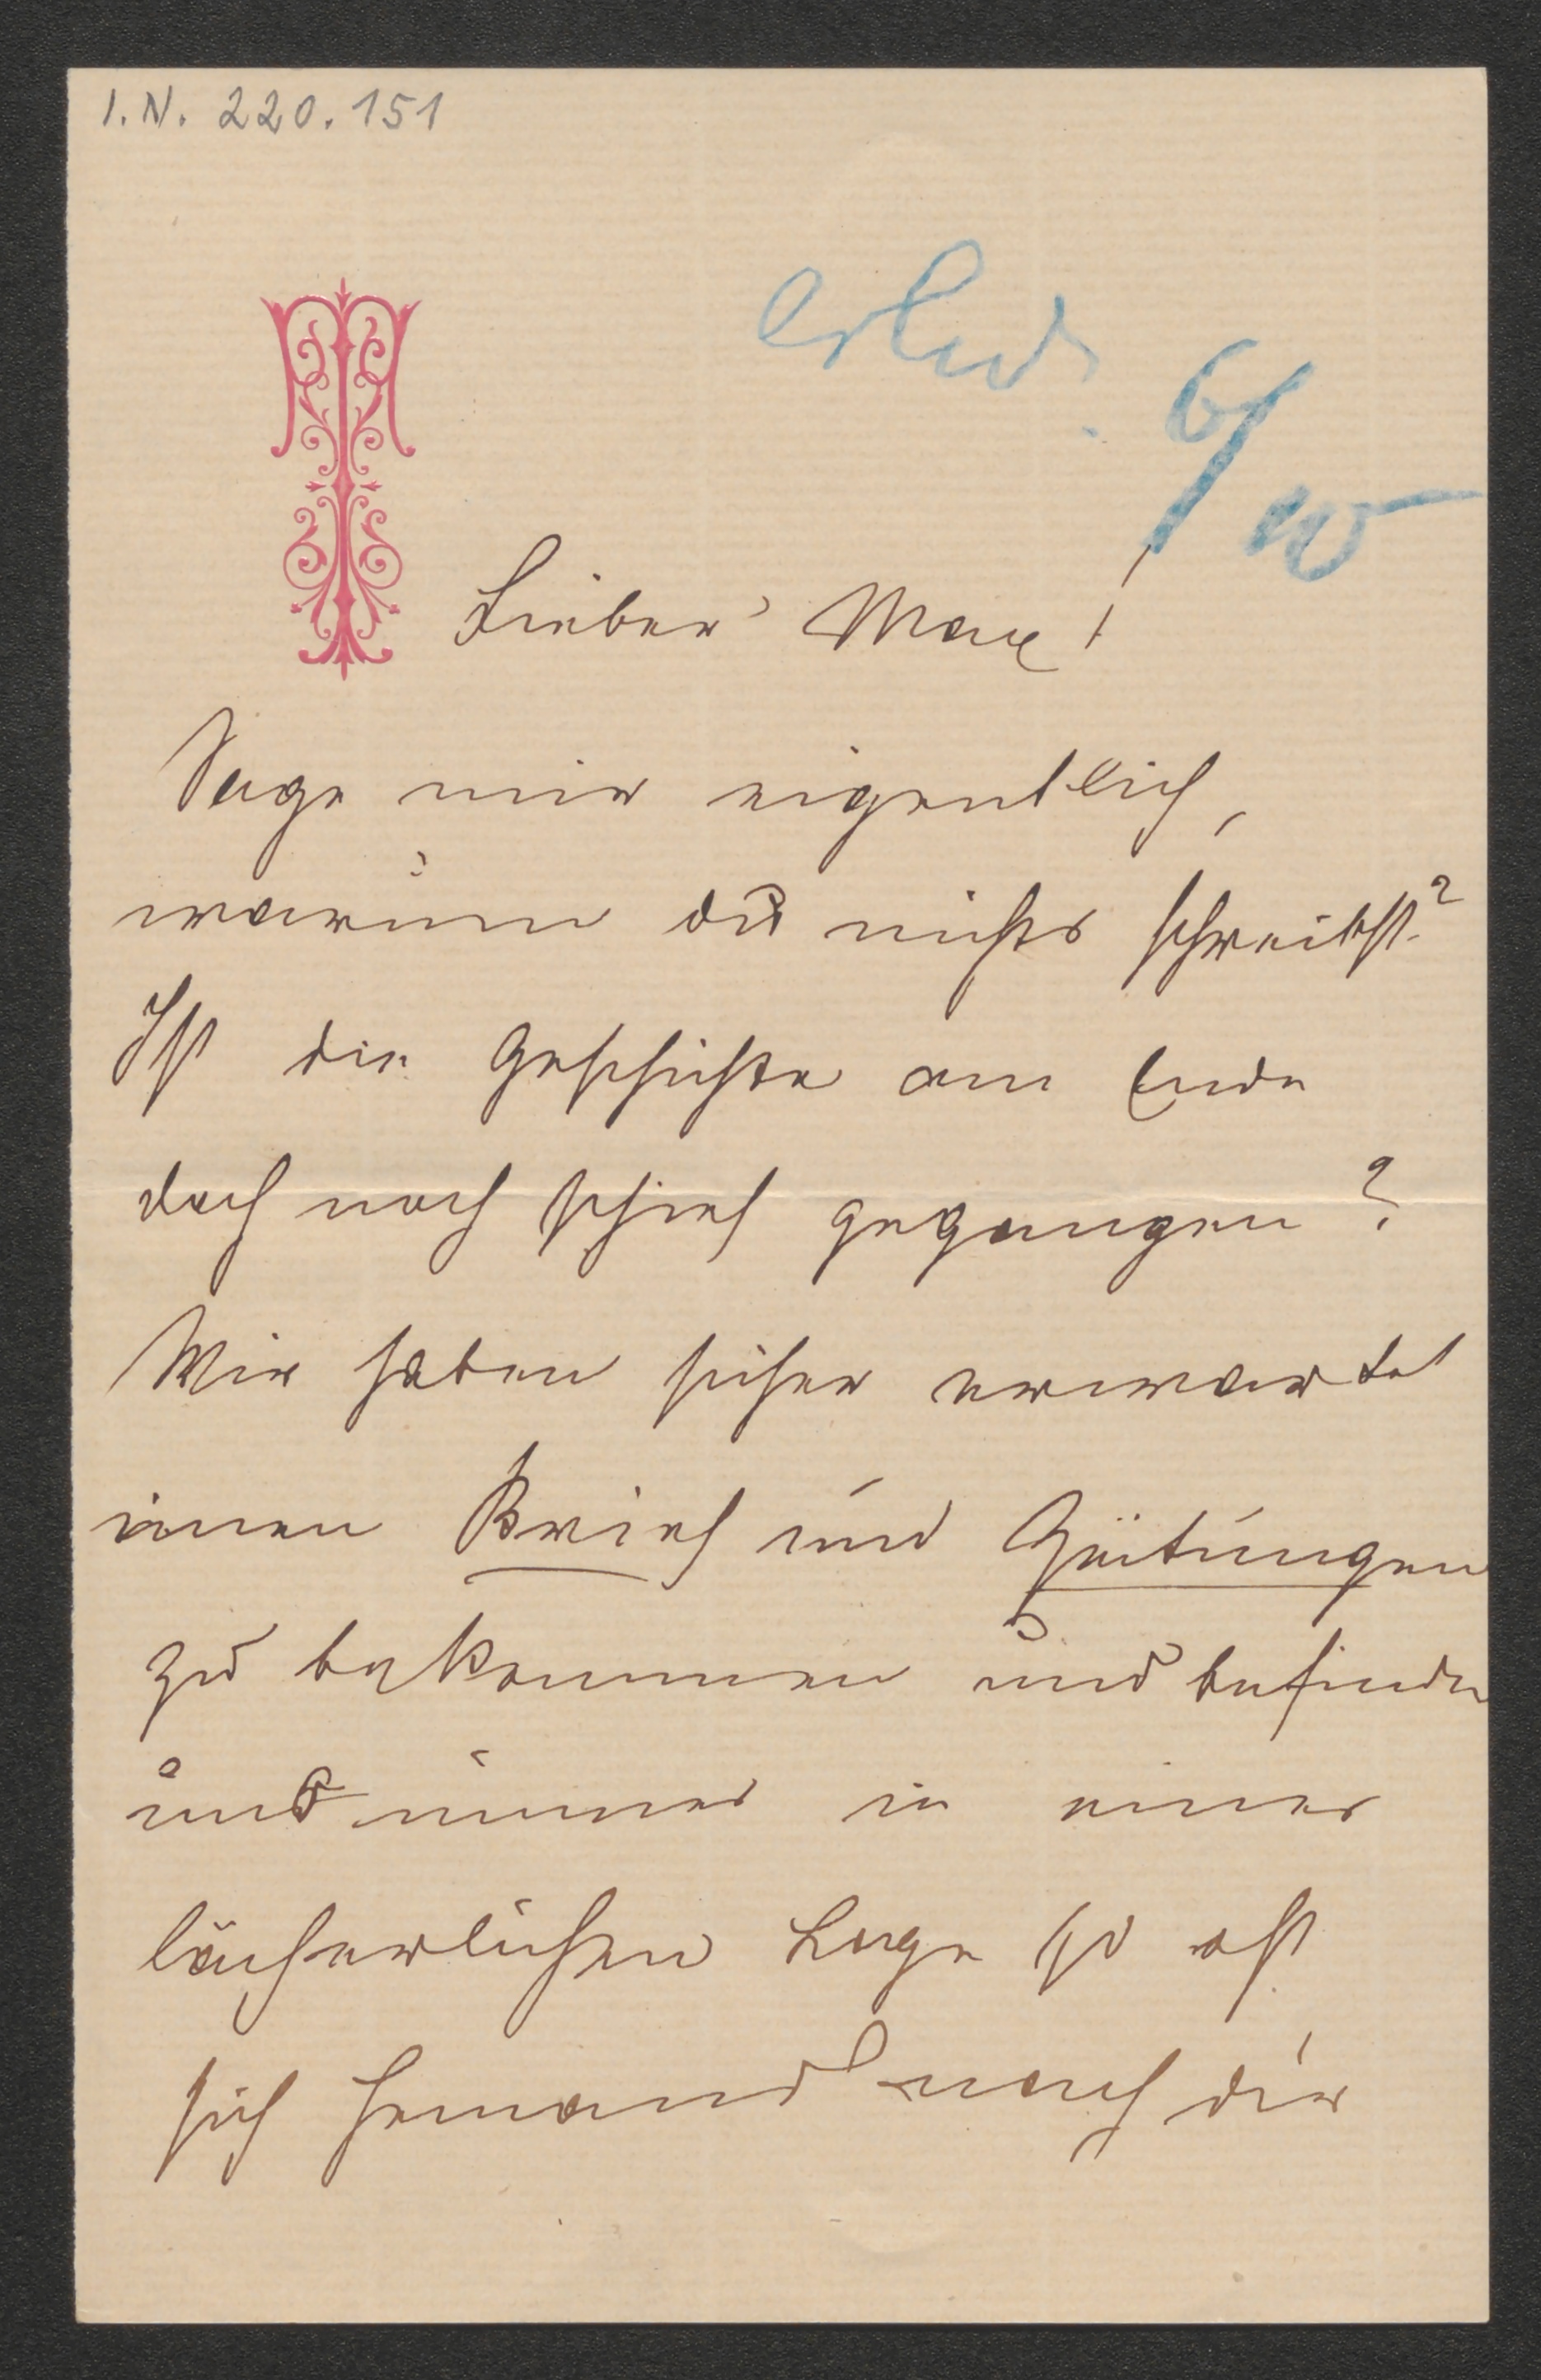 I.N. 220.151
erled. 6/10
Lieber Max!
Sage mir eigentlich,
warum du nichts schreibst?
Ist die Geschichte am Ende
doch noch schief gegangen?
Wir haben sicher erwartet
einen Brief und Zeitungen
zu bekommen und befinden
uns immer in einer
lächerlichen Lage so oft
sich Jemand nach dir